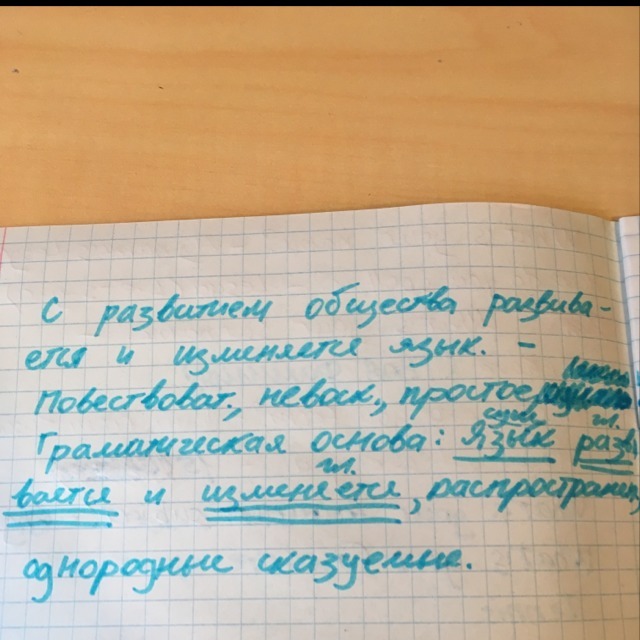 С развитием общества развива-
ется и изменяется язык. -
Повествоват., невоск., простое
сущ. гл.
Граматическая основа: язык разви
гл.
вается и изменяется, распространен,
однородные сказуемые.